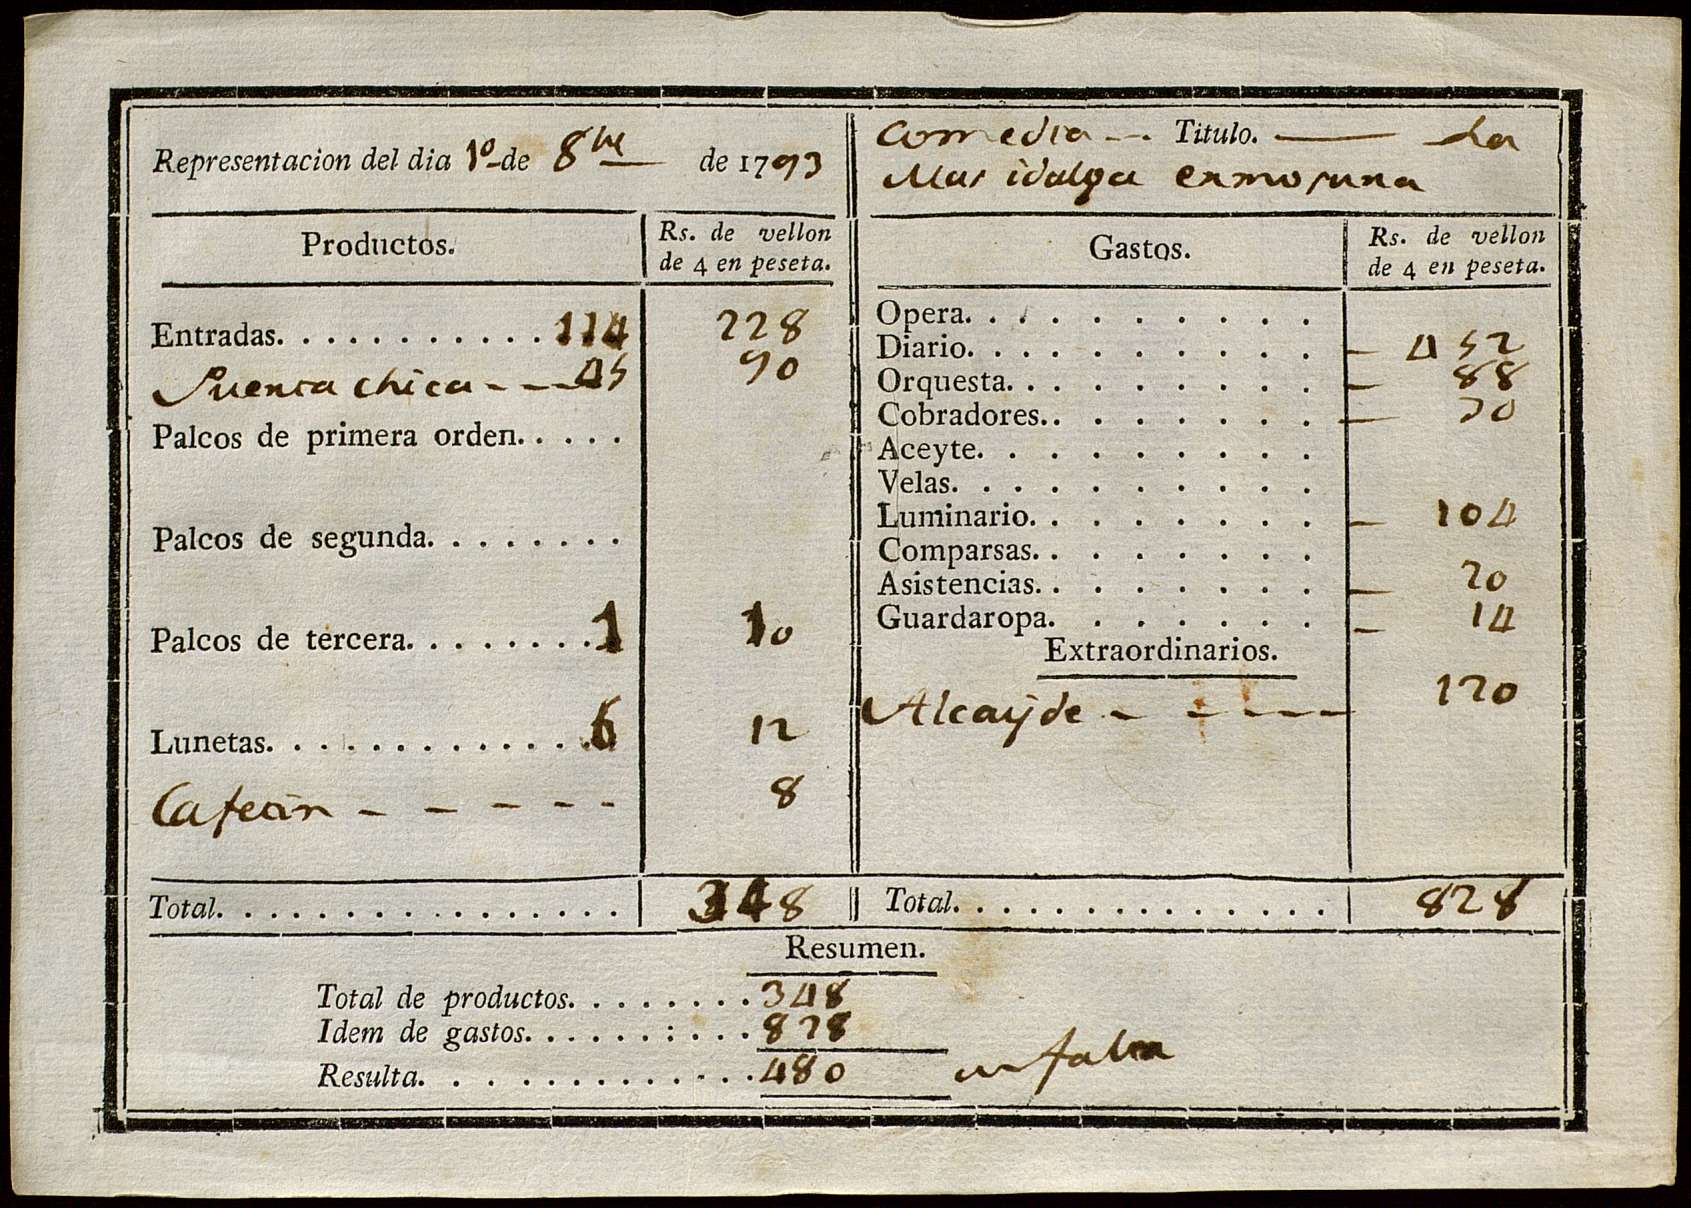 Representacion del dia 1º de 8bre de 1793
Comedia Titulo. La
Mas idalga ermosura
Productos. Rs. de vellon
de 4 en peseta.
Entradas. 114 228
Puerta chica 45 90
Palcos de primera orden.
Palcos de segunda.
Palcos de tercera. 1 10
Lunetas. 6 12
Cafetin 8
Total. 348
Gastos. Rs. de vellon
de 4 en peseta.
Opera.
Diario. 452
Orquesta. 88
Cobradores. 30
Aceyte.
Velas.
Luminario. 104
Comparsas.
Asistencias. 20
Guardaropa. 14
Extraordinarios.
Alcayde 120
Total. 828
Resumen.
Total de productos. 348
Idem de gastos. 828
Resulta. 480 falta